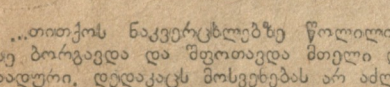 ...თითქოს ნაკვერცხლებზე წოლილ
ბორგავდა და შფოთავდა მთელი
დედაკაცს მოსვენებას არ